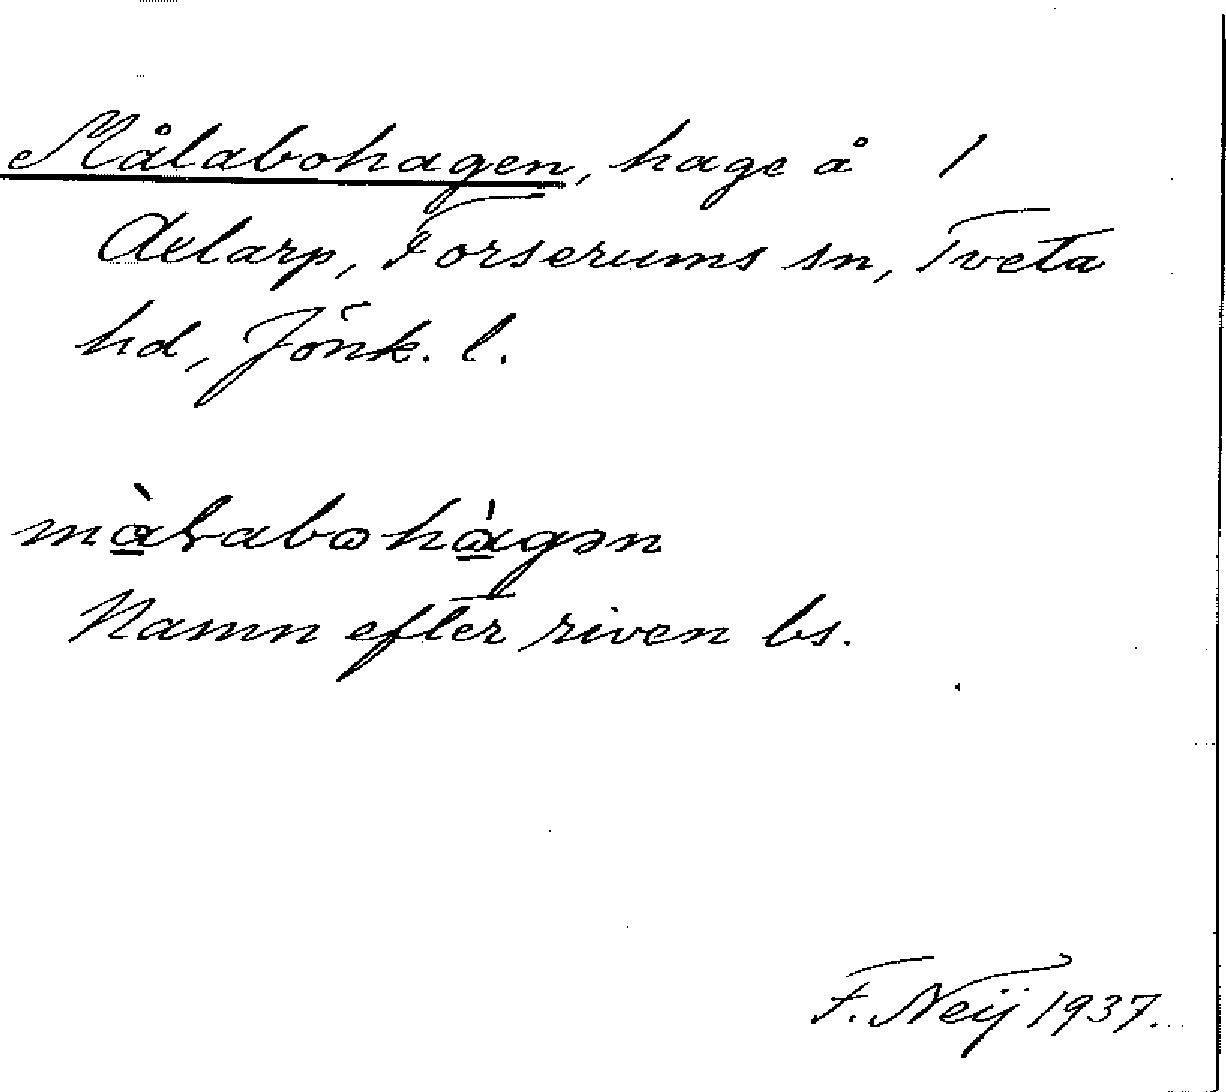 Målabohagen, hage å 1
Aelarp, Forserums sn, Tveta
hd, Jönk. l.
Namn efter riven bs.
F. Neij 1937.